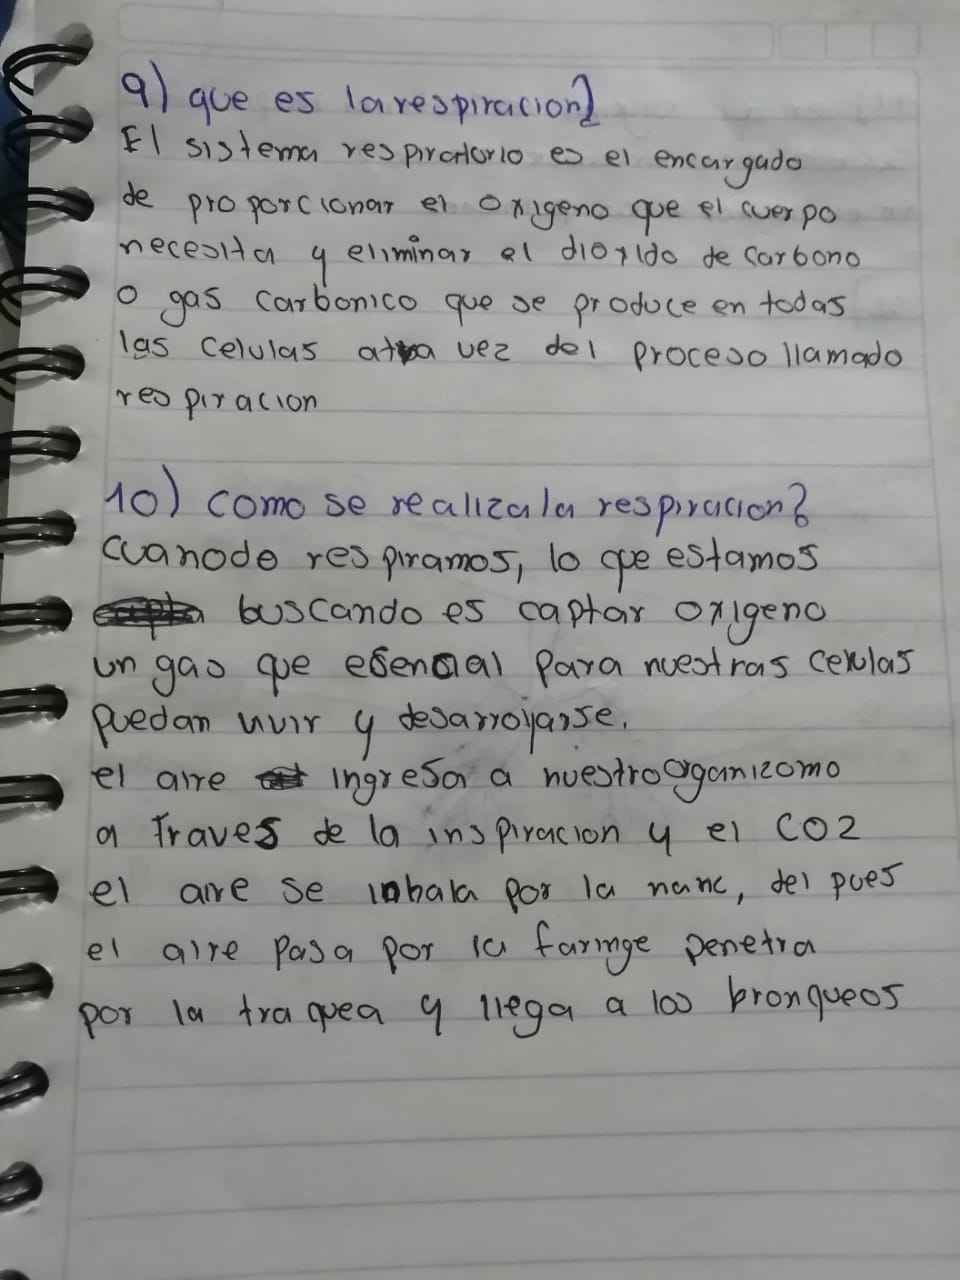 9) que es la respiracion?
El sistema respiratorio es el encargado
de proporcionar el oxigeno que el cuerpo
necesita y eliminar el dioxido de carbono
o gas carbonico que se produce en todas
las celulas a vez del proceso llamado
respiracion
10) como se realiza la respiracion?
cuanodo respiramos, lo que estamos
buscando es captar oxigeno
un gas que esencial para nuestras celulas
puedan vivir y desarroyarse.
el aire ingresa a nuestro organizomo
a traves de la inspiracion y el CO2
el aire se inhala por la nariz, des pues
el aire pasa por la faringe penetra
por la traquea y llega a los bronqueos